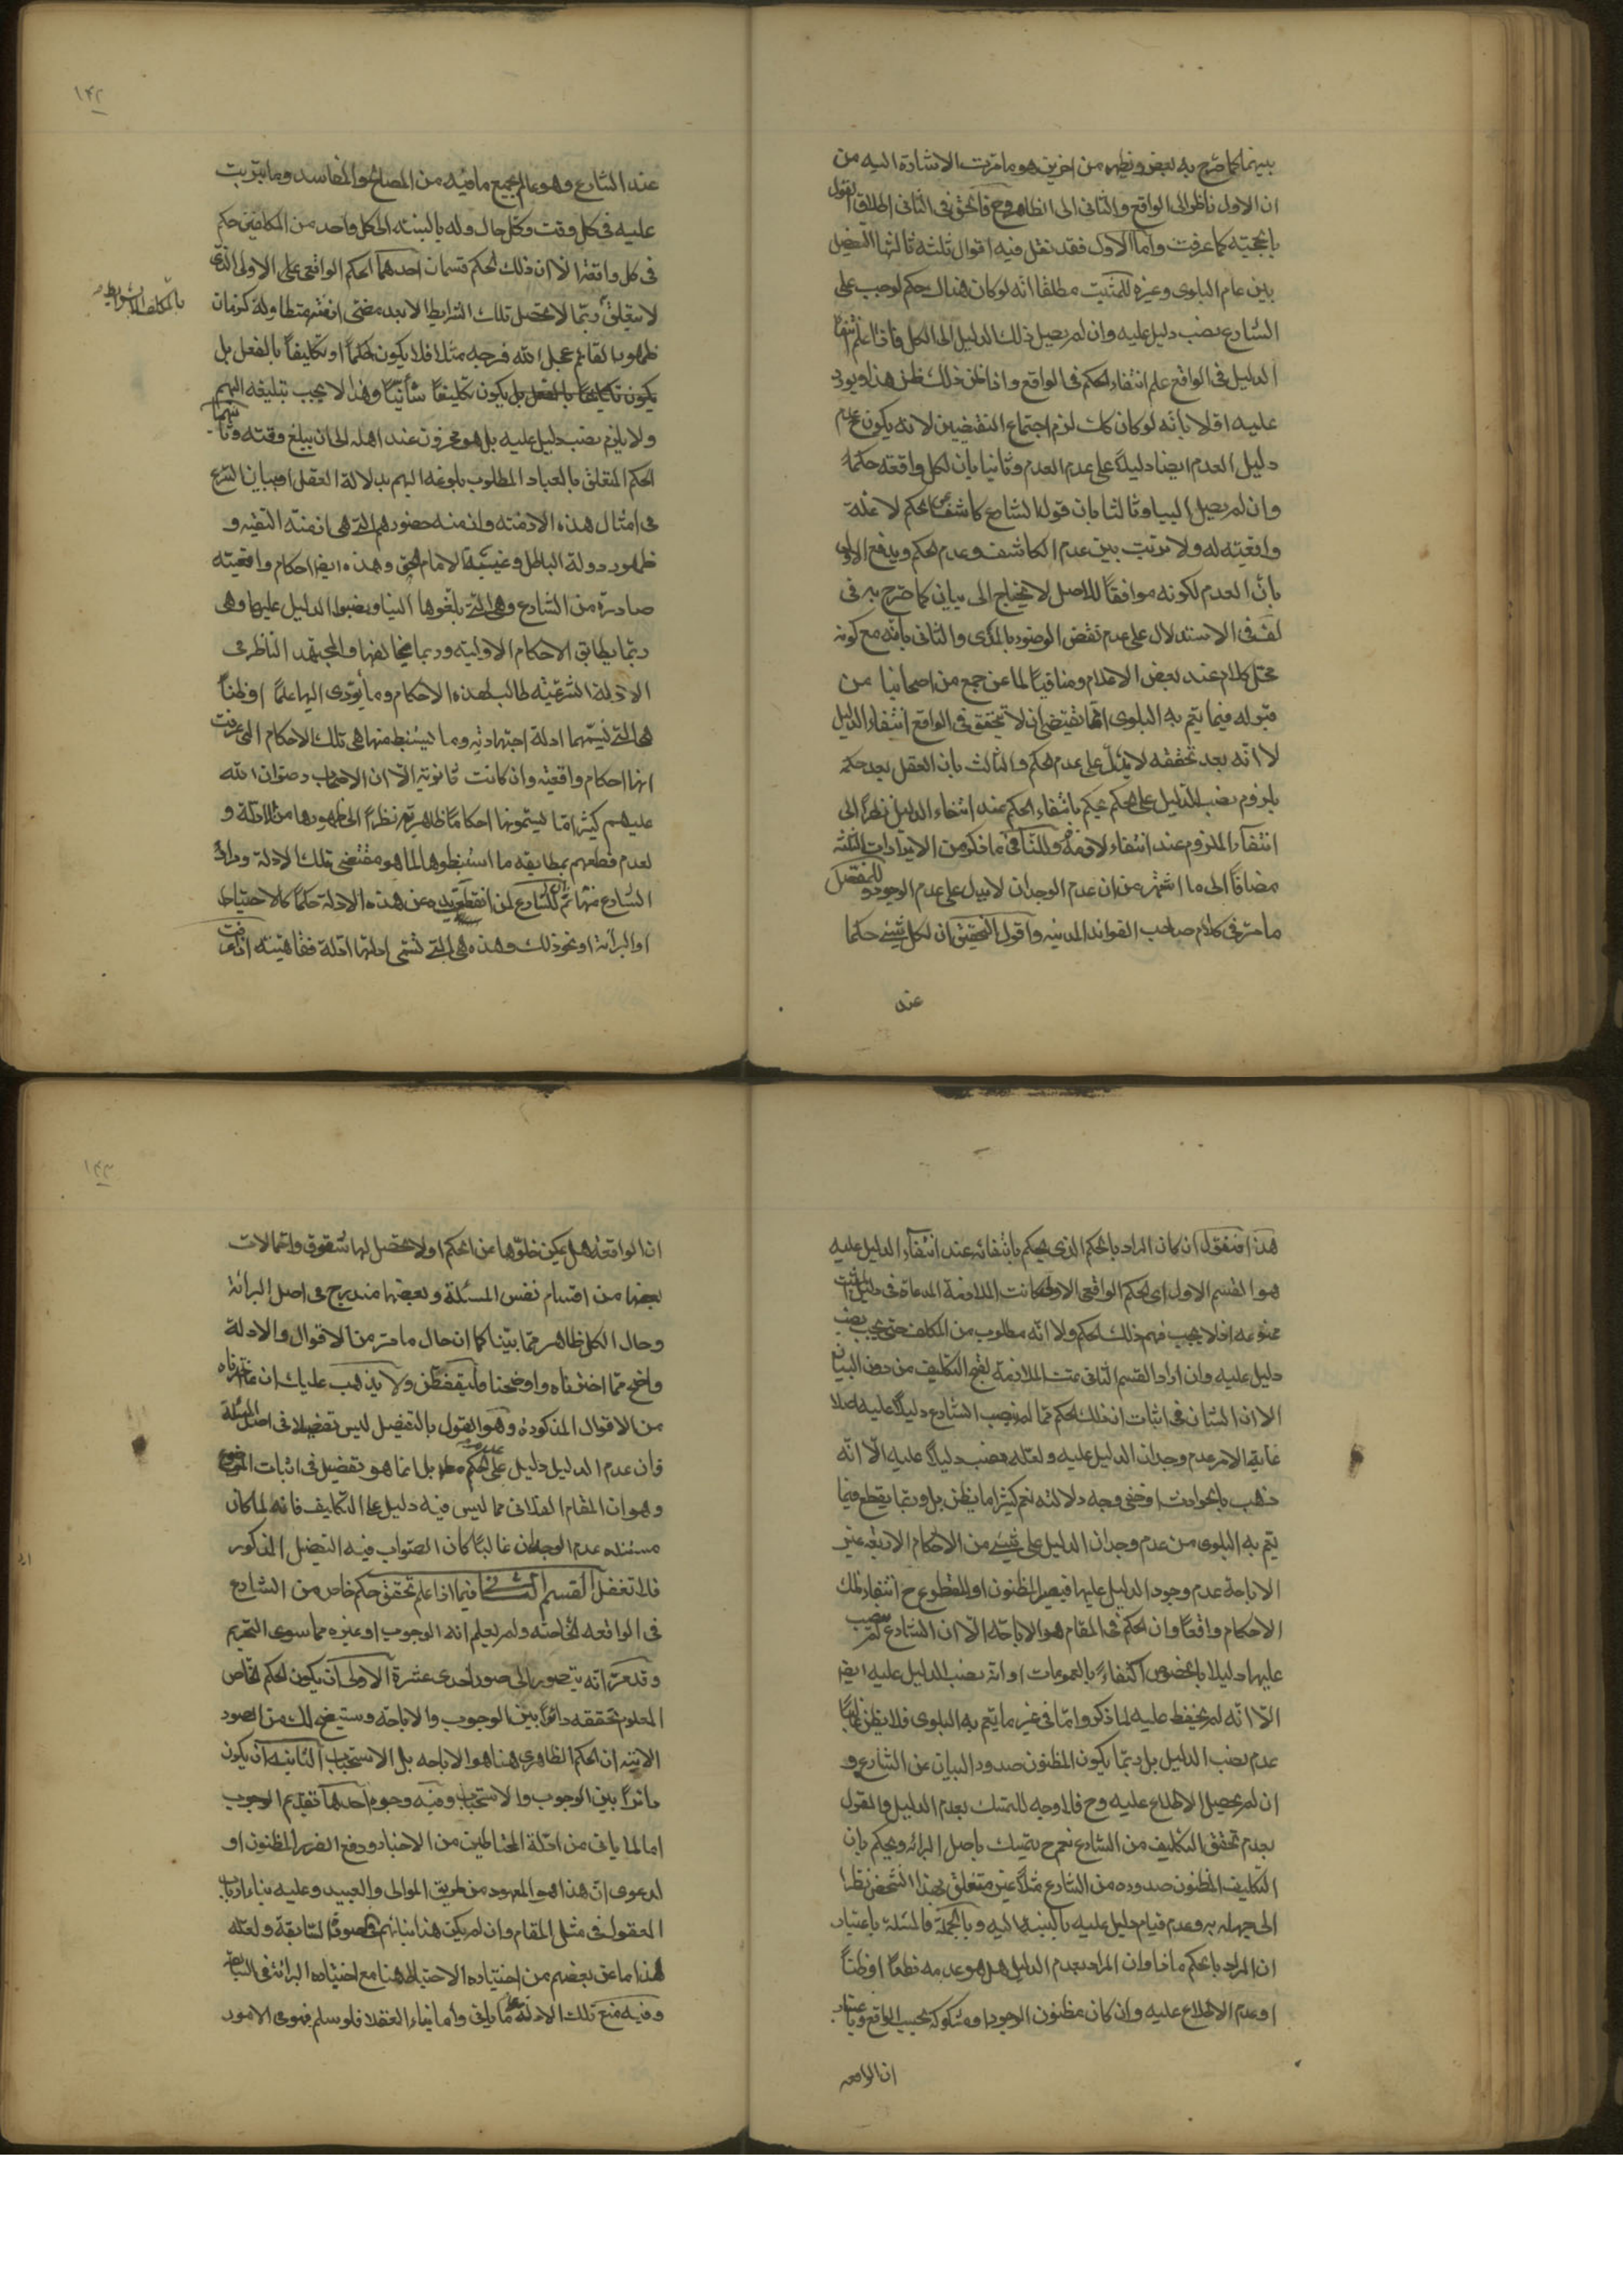 بينهما كما صرح به بعض ويظهر من اخرين هو ما مرت الاشارة اليه من
ان الاول ناظر الى الواقع والثاني الى الظاهر وح فالحق في الثاني اطلاق القول
بالحجية كما عرفت واما الاول فقد نقل فيه اقوال ثلثة ثالثها التفصيل
بين عام البلوى وغيره للمثبت مطلقا انه لو كان هناك حكم لوجب على
الشارع نصب دليل عليه وان لم يصل ذلك الدليل الى الكل فاذا علم انتفاء
الدليل في الواقع علم انتفاء الحكم في الواقع واذا ظن ذلك ظن هذا ويورد
عليه اولا بانه لو كان كك لزم اجتماع النقيضين لانه يكون عدم
دليل العدم ايضا دليلا على عدم العدم وثانيا بان لكل واقعة حكما
وان لم يصل الينا وثالثا بان قول الشارع كاشف عن الحكم لا علة
واقعية له ولا ترتب بين عدم الكاشف وعدم الحكم ويدفع الاول
بان العدم لكونه موافقا للاصل لا يحتاج الى بيان كما صرح به في
لف في الاستدلال على عدم نقض الوضوء بالمذى والثاني بانه مع كونه
محل كلام عند بعض الاعلام ومنافيا لما عن جمع من اصحابنا من
قبوله فيما يعم به البلوى انما يقتضي ان لا يتحقق في الواقع انتفاء الدليل
لا انه بعد تحققه لا يدل على عدم الحكم والثالث بان العقل بعد حكمه
بلزوم نصب الدليل على الحكم يحكم بانتفاء الحكم عند انتفاء الدليل نظرا الى
انتفاء الملزوم عند انتفاء لازمه وللنافي ما ذكر من الايرادات الثلثة
مضافا الى ما اشتهر من ان عدم الوجدان لا يدل على عدم الوجود وللمفصل
ما مر في كلام صاحب الفوائد المدنيه واقول التحقيق ان لكل شيء حكما
عند
١٤٢
عند الشارع وهو عالم بجميع ما فيه من المصالح والمفاسد وما يترتب
عليه في كل وقت وكل حال وله بالنسبة الى كل واحد من المكلفين حكم
في كل واقعة الا ان ذلك الحكم قسمان احدهما الحكم الواقعي على الاولى الذي
لا يتعلق ربما لا تحصل تلك الشرايط الا بعد مضى ازمنة متطاولة كزمان
بالمكلف الا بشرايط
ظهور القائم عجل الله فرجه مثلا فلا يكون حكما او تكليفا بالفعل بل
يكون تكليفا بالفعل بل يكون تكليفا شأنيا وهذا لا يجب تبليغه اليهم
ولا يلزم نصب دليل عليه بل هو مخزون عند اهله الى ان يبلغ وقته وثانيهما
الحكم المتعلق بالعباد المطلوب بلوغه اليهم بدلالة العقل او ببيان الشرع
في امثال هذه الازمنة وازمنة حضورهم التي هي ازمنة التقيه و
ظهور دولة الباطل وغيبة الامام الحق وهذه ايضا احكام واقعية
صادرة من الشارع وهي التي بلغوها الينا ونصبوا الدليل عليها وهي
ربما يطابق الاحكام الاولية وربما يخالفها والمجتهد الناظر في
الادلة الشرعية طالب لهذه الاحكام وما يؤدى اليها علما او ظنا
هي التي نسميها ادلة اجتهادية وما يستنبط منها هي تلك الاحكام التي عرفت
انها احكام واقعية وان كانت ثانوية الا ان الاصحاب رضوان الله
عليهم كثيرا ما يسمونها احكاما ظاهرية نظرا الى ظهورها من الادلة و
لعدم قطعهم بمطابقه ما استنبطوها لما هو مقتضى تلك الادلة ومراد
الشارع منها ثم للشارع لمن انقطع يده عن هذه الادلة حكما كالاحتياط
او البرائة او نحو ذلك وهذه هي التي تسمى ادلتها ادلة فقاهتيه اذا عرفت
هذا فنقول ان كان المراد بالحكم الذي يحكم بانتفائه عند انتفاء الدليل عليه
هو القسم الاول اى الحكم الواقعي الاولى كانت الملازمة المدعاة في دليل المثبت
ممنوعه اذ لا يجب فهم ذلك الحكم ولا انه مطلوب من المكلف حتى يجب نصب
دليل عليه وان اراد القسم الثاني تمت الملازمة لقبح التكليف من دون البيان
الا ان الشان في اثبات ان ذلك الحكم مما لم ينصب الشارع دليلا عليه اصلا
غاية الامر عدم وجدان الدليل عليه ولعله نصب دليلا عليه الا انه
ذهب بالحوادث او خفي وجه دلالته نعم كثيرا ما يظن بل وربما يقطع فيما
يعم به البلوى من عدم وجدان الدليل على شيء من الاحكام الاربعة غير
الاباحة عدم وجود الدليل عليها فيصير المظنون او المقطوع ح انتفاء تلك
الاحكام واقعا وان الحكم في المقام هو الاباحة الا ان الشارع لم ينصب
عليها دليلا بالخصوص اكتفاء بالعمومات او انه نصب الدليل عليه ايضا
الا انه لم يحفظ عليه لما ذكر واما في غير ما يعم به البلوى فلا يظن غالبا
عدم نصب الدليل بل ربما يكون المظنون صدور البيان عن الشارع و
ان لم يحصل الاطلاع عليه وح فلا وجه للتمسك بعدم الدليل والقول
بعدم تحقق التكليف من الشارع نعم ح يتمسك باصل البرائه ويحكم بان
التكليف المظنون صدوره من الشارع مثلا غير متعلق بهذا الشخص نظرا
الى جهله به وعدم قيام دليل عليه بالنسبة اليه وبالجملة فالمسئلة باعتبار
ان المراد بالحكم ماذا وان المراد بعدم الدليل هل هو عدمه قطعا او ظنا
او عدم الاطلاع عليه وان كان مظنون الوجود او مشكوكه بحسب الواقع وباعتبار
ان الواقعه
١٤٣
ان الواقعه هل يمكن خلوها عن الحكم او لا تحصل لها شقوق واحتمالات
بعضها من اقسام نفس المسئلة وبعضها مندرج في اصل البرائة
وحال الكل ظاهر مما بينا كما ان حال ما مر من الاقوال والادلة
واضح مما اخترناه واوضحنا فليتفطن ولا يذهب عليك ان ما اخترناه
من الاقوال المذكورة وهو القول بالتفصيل ليس تفصيلا في اصل المسئلة
فان عدم الدليل دليل على عدم الحكم بل انما هو تفصيل في اثبات الموضوع
وهو ان المقام الفلاني مما ليس فيه دليل على التكليف فانه لما كان
مستنده عدم الوجدان غالبا كان الصواب فيه التفصيل المذكور
فلا تغفل القسم الثاني فيما اذا علم تحقق حكم خاص من الشارع
في الواقعه الخاصة ولم يعلم انه الوجوب او غيره مما سوى التحريم
وقد مر انه يتصور الى صور احدى عشرة الاولى ان يكون الحكم الخاص
المعلوم تحققه دائرا بين الوجوب والاباحة وستيضح لك من الصور
الاتية ان الحكم الظاهرى هنا هو الاباحه بل الاستحباب الثانية ان يكون
دائرا بين الوجوب والاستحباب وفيه وجوه احدها تقديم الوجوب
اما لما ياتى من ادلة المحتاطين من الاخبار ودفع الضرر المظنون او
لدعوى ان هذا هو المعهود من طريق الموالى والعبيد وعليه بناء ارباب
العقول في مثل المقام وان لم يكن هذا بنائهم في الصورة السابقة ولعله
لهذا ما عن بعضهم من اختياره الاحتياط هنا مع اختياره البرائة في السابقة
وفيه منع تلك الادلة على ما ياتى واما بناء العقلا فلو سلم فهو في الامور